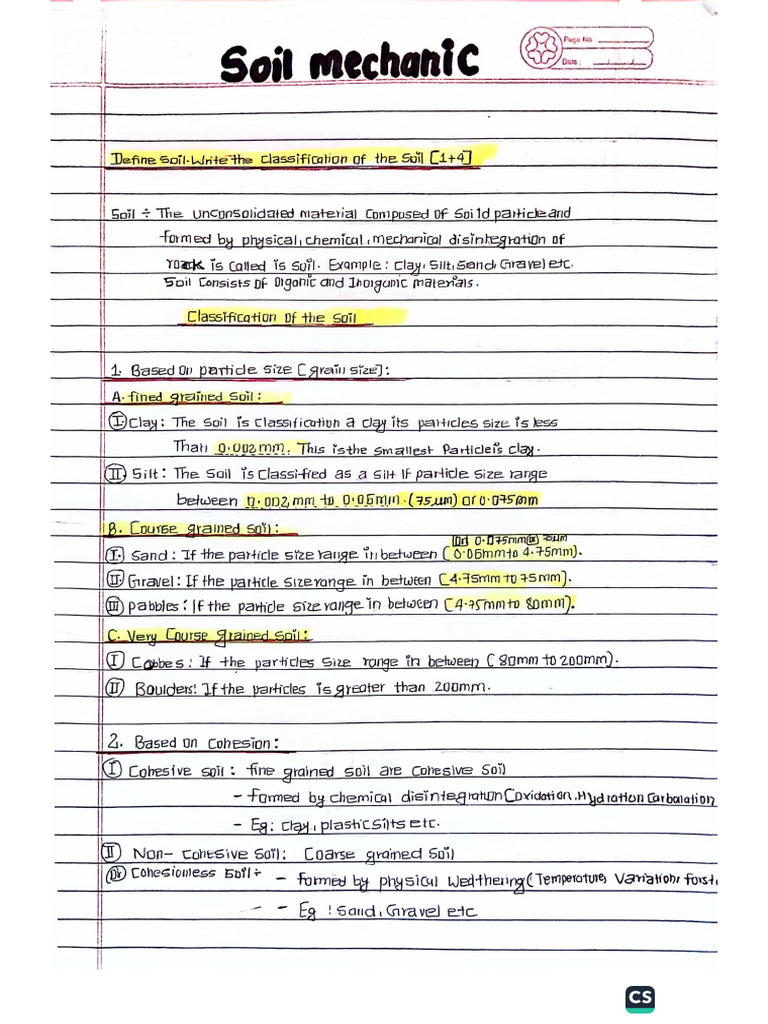 Soil mechanic
Page No
Date :
Define Soil. Write the Classification of the Soil [1+4]
Soil ÷ The unconsolidated material Composed of Soild particle and
formed by physical, chemical, mechanical disintegration of
roack is Called is Soil. Example : Clay, Silt, Sand, Gravel etc.
Soil Consists of Organic and Inorganic materials.
Classification of the Soil
1. Based on particle size [grain size] :
A. fined grained Soil :
(I) Clay : The Soil is Classification a clay its particles size is less
Than 0.002 mm. This is the smallest Particle is clay.
(II) Silt : The Soil is Classified as a Silt If particle Size range
between 0.002 mm to 0.06 mm. (75 µm) or 0.075mm
B. Course grained Soil :
[or 0.075mm (or) 75µm
(I) Sand : If the particle size range in between (0.06mm to 4.75mm).
(II) Gravel : If the particle size range in between (4.75mm to 75mm).
(III) pabbles : If the particle size range in between (4.75mm to 80mm).
C. Very Course grained Soil :
(I) Cobbes : If the particles Size range in between (80mm to 200mm).
(II) Boulders! If the particles is greater than 200mm.
2. Based on Cohesion :
(I) Cohesive soil : fine grained soil are Cohesive Soil
- formed by chemical disintegration (oxidation, Hydration Carbonation
- Eg : clay, plastic silts etc.
(II) Non- Cohesive Soil : Coarse grained Soil
(Or) Cohesionless Soil ÷ - formed by physical Weathering (Temperature, Variation, forst,
- - Eg ! Sand, Gravel etc
CS